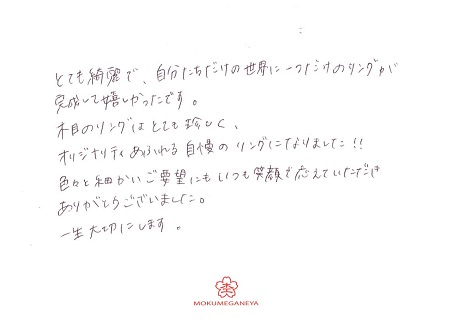 とても綺麗で、自分たちだけの世界に一つだけのリングが
完成して嬉しかったです。
木目のリングはとても珍しく、
オリジナリティあふれる自慢のリングになりました!!
色々と細かいご要望にもいつも笑顔で応えていただき
ありがとうございました。
一生大切にします。
MOKUMEGANEYA